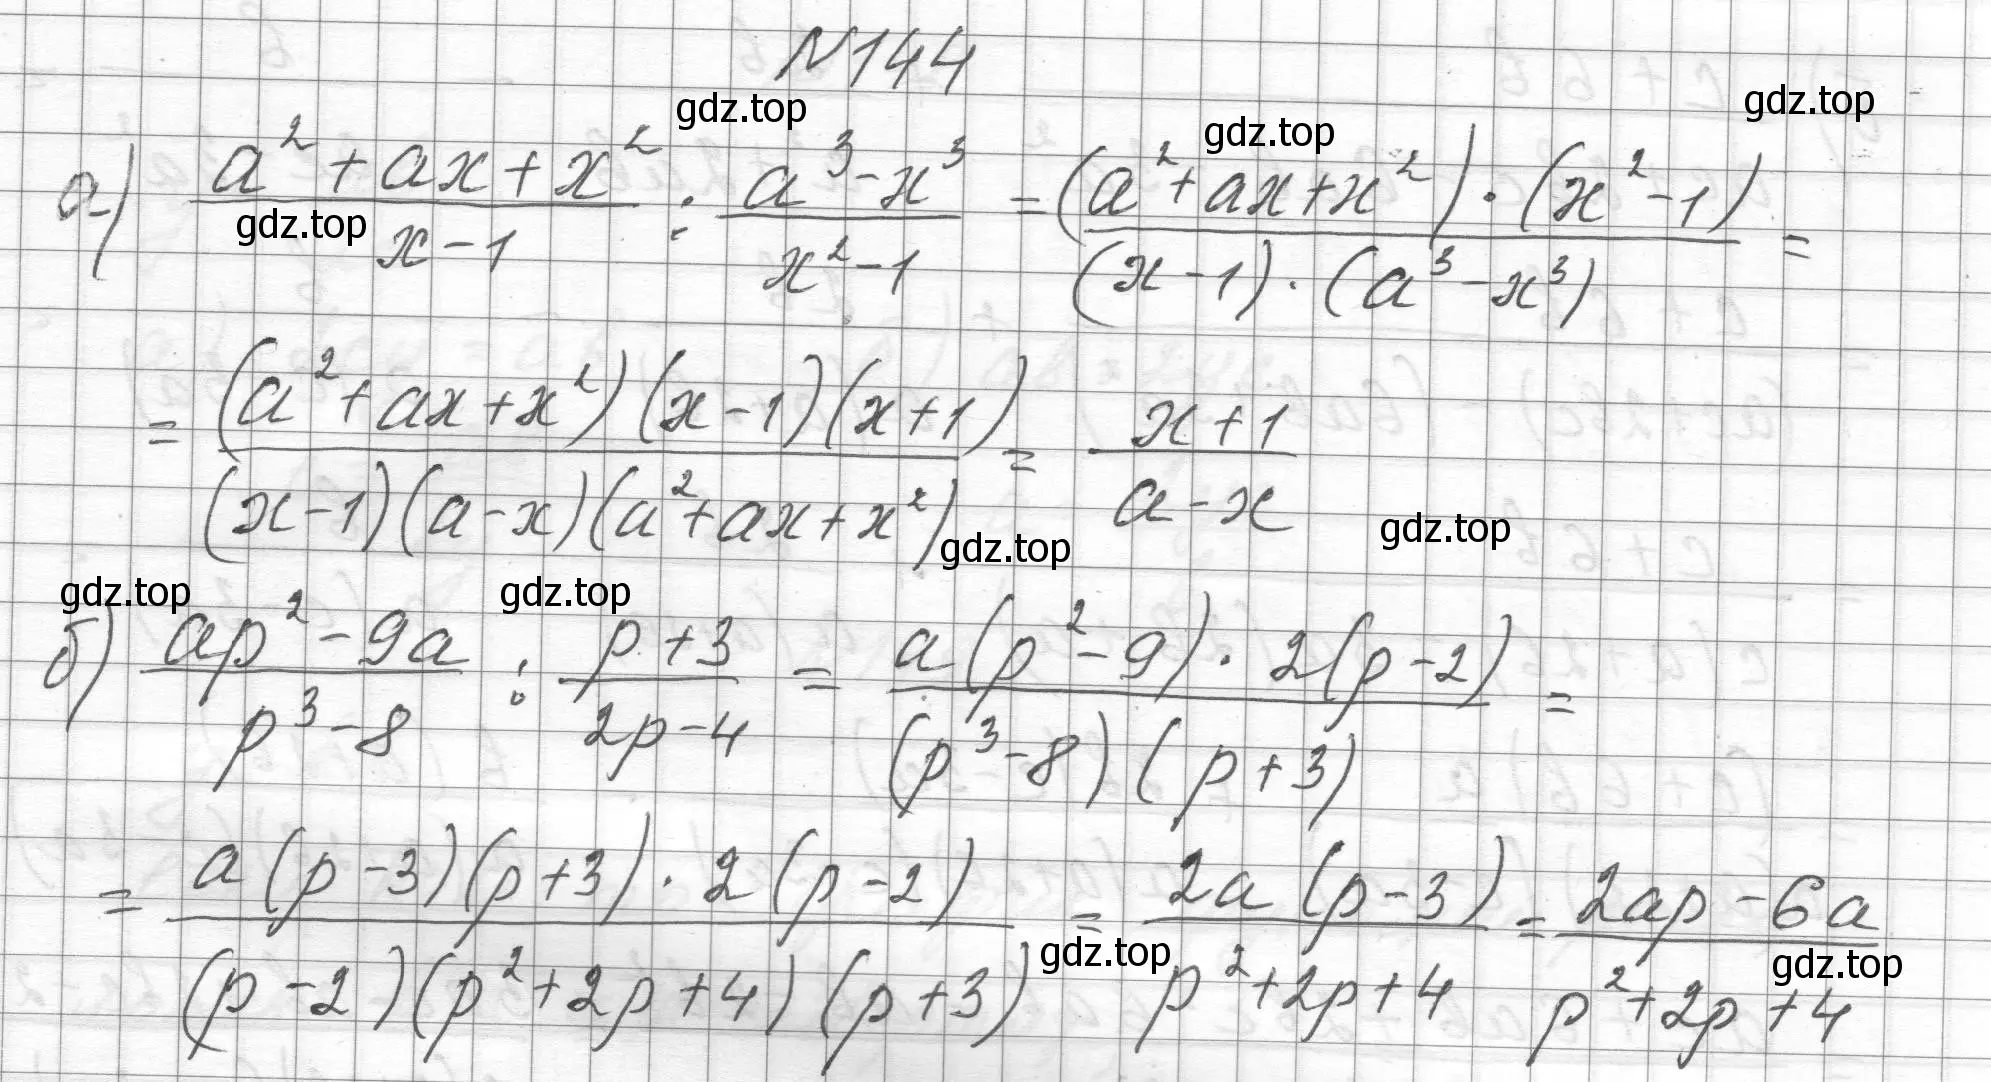 N144
gdz.top gdz.top gdz.top
а) (a² + ax + x²)/(x - 1) : (a³ - x³)/(x² - 1) = ((a² + ax + x²) · (x² - 1))/((x - 1) · (a³ - x³)) =
gdz.top
= ((a² + ax + x²)(x - 1)(x + 1))/((x - 1)(a - x)(a² + ax + x²)) = (x + 1)/(a - x)
gdz.top gdz.top
gdz.top gdz.top
б) (ap² - 9a)/(p³ - 8) : (p + 3)/(2p - 4) = (a(p² - 9) · 2(p - 2))/((p³ - 8)(p + 3)) =
= (a(p - 3)(p + 3) · 2(p - 2))/((p - 2)(p² + 2p + 4)(p + 3)) = (2a(p - 3))/(p² + 2p + 4) = (2ap - 6a)/(p² + 2p + 4)
gdz.top gdz.top